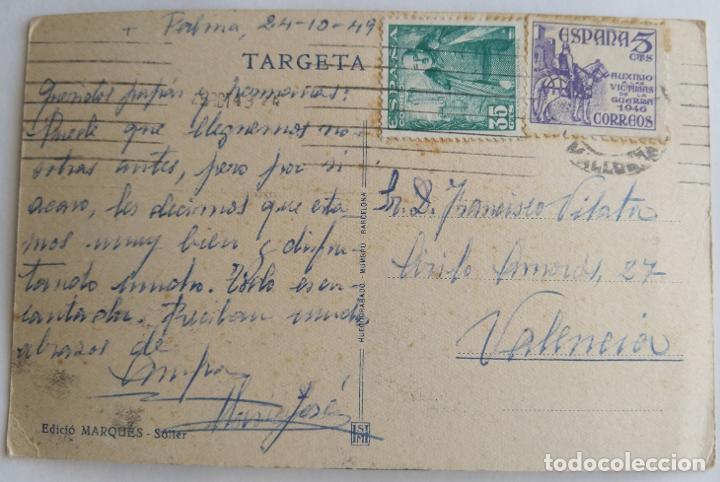 + Palma, 24-10-49
TARGETA
Queridos papás y hermanas:
Puede que lleguemos no-
sotras antes, pero por si
acaso, les decimos que esta-
mos muy bien y disfru-
tando mucho. Todo es en-
cantador. Reciban muchos
abrazos de
Amparo
María José
Edició MARQUÉS - Sóller
HUECOGRABADO MUMBRÚ BARCELONA
ESPAÑA
35
CTS
ESPAÑA 5
CTS
AUXILIO
A LAS
VICTIMAS
DE LA
GUERRA
1946
CORREOS
Sr. D. Francisco Vilata
Cirilo Amorós, 27
Valencia
todocoleccion.net